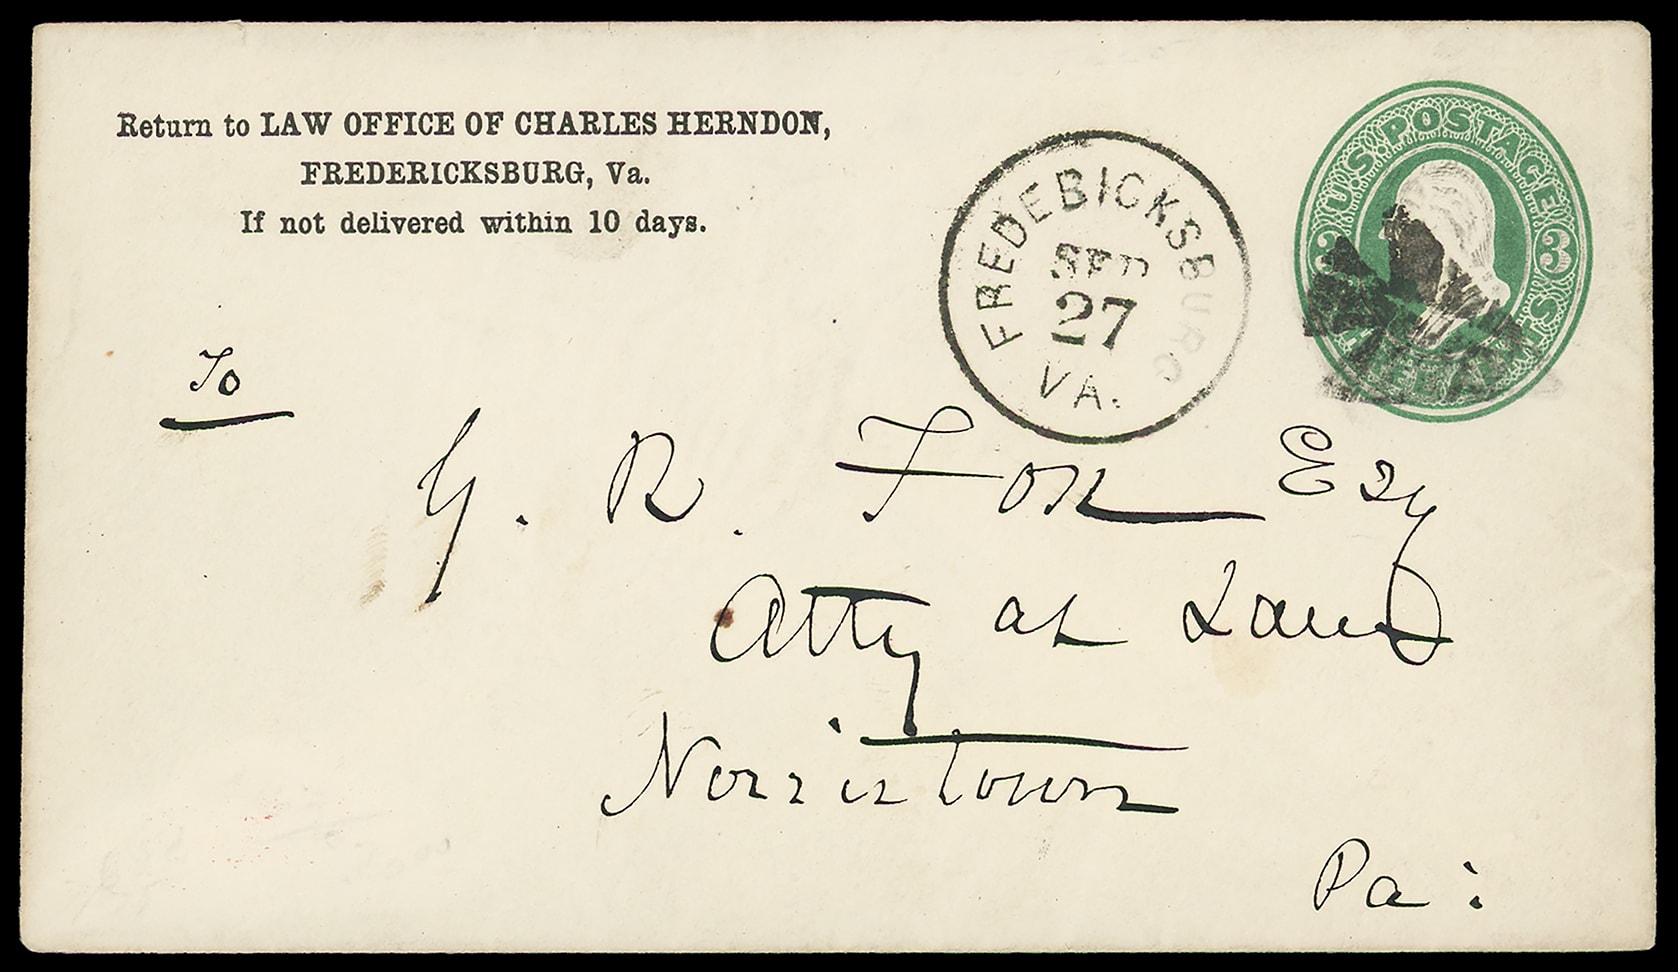 Return to LAW OFFICE OF CHARLES HERNDON,
FREDERICKSBURG, Va.
If not delivered within 10 days.
FREDERICKSBURG
SEP
27
VA.
U.S. POSTAGE
3 3
To
G. R. Fox Esq
Atty at Law
Norristown
Pa: